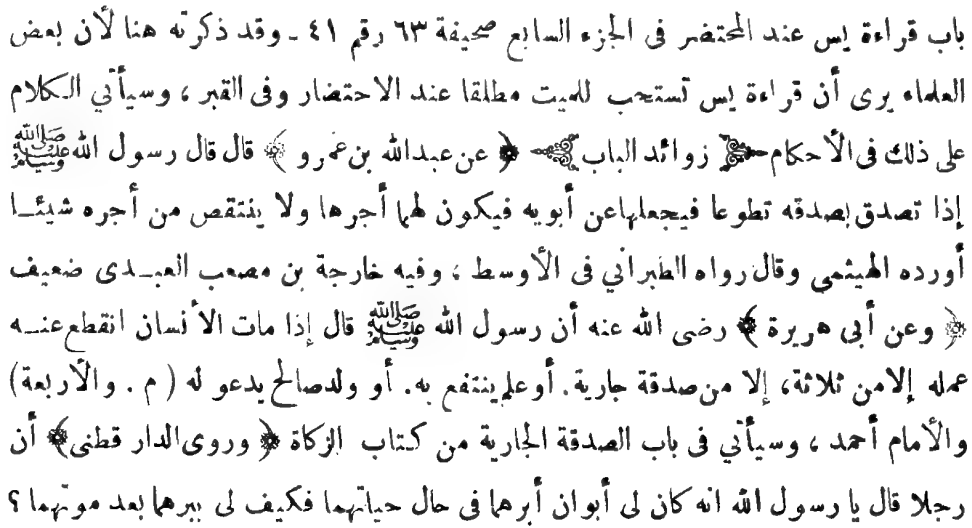 باب قراءة يس عند المحتضر فى الجزء السابع صحيفة ٦٣ رقم ٤١ - وقد ذكرته هنا لأن بعض
العلماء يرى أن قراءة يس تستحب للميت مطلقا عند الاحتضار وفى القبر ، وسيأتي الكلام
على ذلك فى الأحكام ﴿ زوائد الباب ﴾ ﴿ عن عبدالله بن عمرو ﴾ قال قال رسول الله ﷺ
إذا تصدق بصدقه تطوعا فيجعلها عن أبويه فيكون لهما أجرها ولا ينتقص من أجره شيئا
أورده الهيثمى وقال رواه الطبرانى فى الأوسط ، وفيه خارجة بن مصعب العبدى ضعيف
﴿ وعن أبى هريرة ﴾ رضى الله عنه أن رسول الله ﷺ قال إذا مات الأنسان انقطع عنه
عمله إلا من ثلاثة، إلا من صدقة جارية. أو علم ينتفع به. أو ولد صالح يدعو له ( م . والأربعة)
والأمام أحمد ، وسيأتي فى باب الصدقة الجارية من كتاب الزكاة ﴿ وروى الدار قطنى ﴾ أن
رجلا قال يا رسول الله انه كان لى أبوان أبرهما فى حال حياتهما فكيف لى ببرهما بعد موتهما ؟